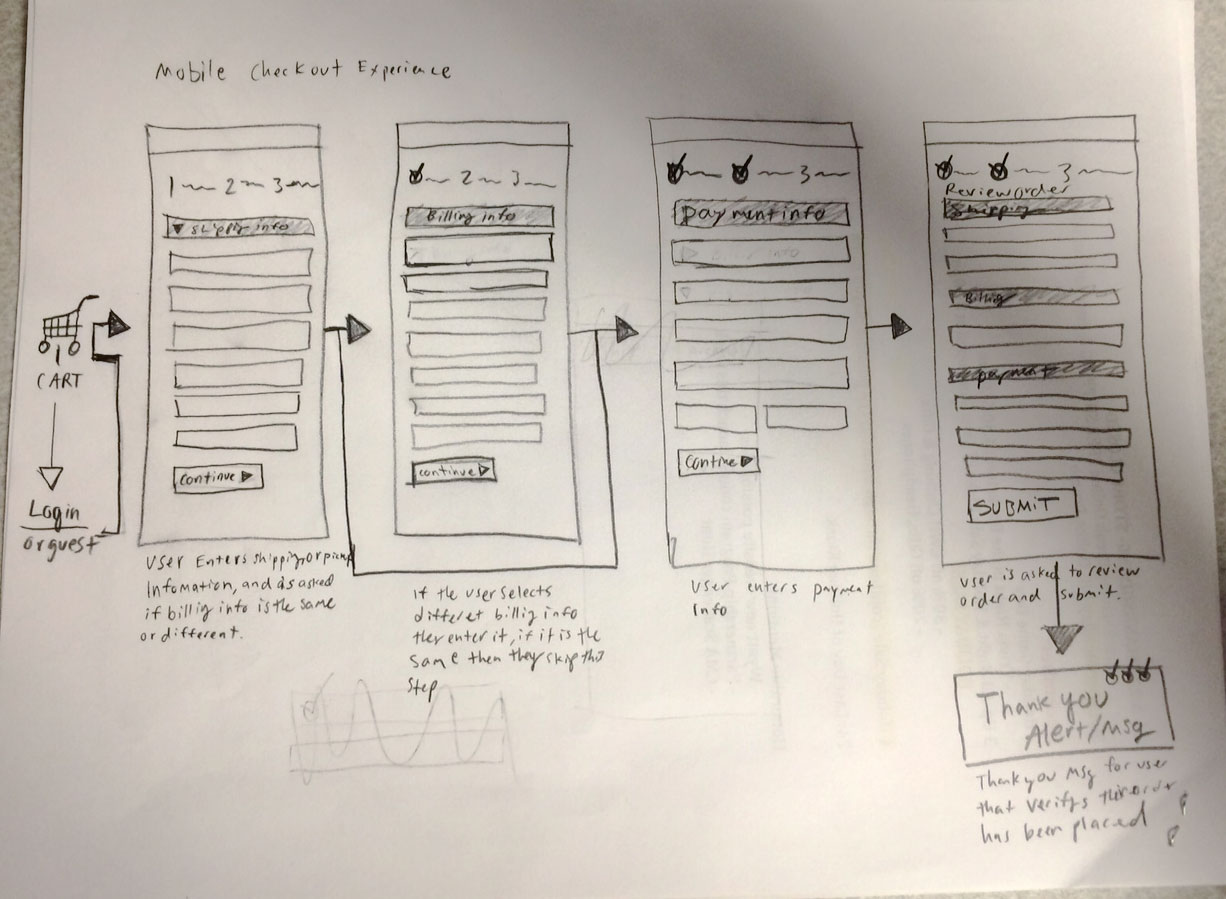 Mobile Checkout Experience
1 2 3
▼ shippig info
continue ▶
CART
Login
or guest
User Enters shipping, or pickup
Infomation, and is asked
if billig info is the same
or different.
2 3
Billing info
continue ▶
If the user selects
differet billig info
they enter it, if it is the
same then they skip this
step
3
payment info
Contine ▶
User enters payment
Info
3
Review order
Shipping
Billig
payment
SUBMIT
User is asked to review
order and submit.
Thank you
Alert/Msg
Thank you Msg for user
that verifys their order
has been placed